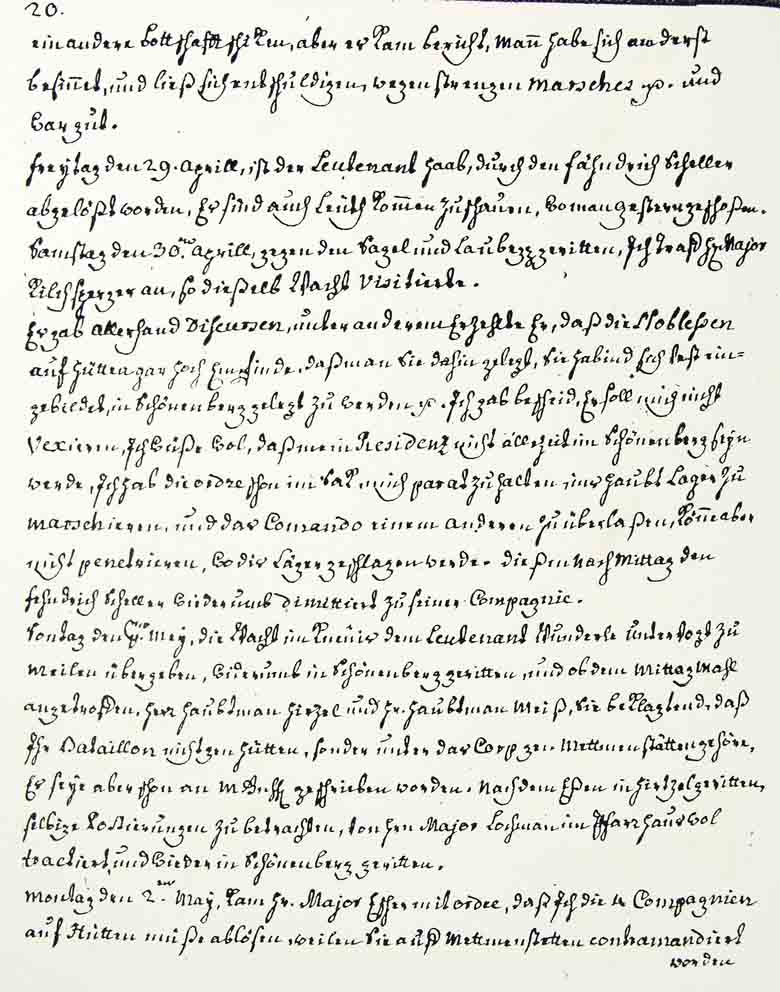 20.
ein andere Bottschafft schiken, aber es kam bericht, mañ habe sich anderst
besiñet, und ließ sich entschuldigen, wegen strengen Marsches p. und
war gut.
Freytag den 29. Aprill, ist der Leutenant Haab, durch den fähndrich Scheller
abgelößt worden, Er sind auch Leüth kom̃en zuschauen, wo man gestern geschoßen.
Samstag den 30ten Aprill, gegen den Sagel und Laubegg geritten, Ich traff Hr. Major
Kilchsperger an, so dieselb Wacht Visitierte.
Er gab allerhand Discursen, unter anderem Erzehlte Er, daß die Noblessen
auf Hütten gar hoch empfinde, daß man Sie dahin gelegt, Sie habind sich vest ein=
gebildet, in Schönenberg gelegt zu werden p. Ich gab bescheid, Er soll mich nicht
Vexieren, Ich wüße wol, daß mein Residenz nicht alle zeit im Schönenberg seyn
werde, Ich hab die ordre schon im Sak, mich parat zu halten, ins haubt Lager zu
marschieren, und das Comando einem anderen zu überlaßen, Köñe aber
nicht penetrieren, wo dis Läger geschlagen werde. dießen nach Mittag den
fehndrich Scheller widerumb dimittiert zu seiner Compagnie.
Sontag den 1ten Mey, die Wacht im Kneüis dem Leutenant Wunderle Untervogt zu
Meilen übergeben, widerumb in Schönenberg geritten, und ob dem Mittag Mahl
angetroffen, Herr Haubtman Hirzel und Hr. Haubtman Meiß, Sie beklagtend, daß
Ihr Bataillon nicht gen Hütten, sonder unter das Corp gen Mettmenstätten gehöre,
Er seye aber schon an geschrieben worden. Nach dem Eßen in Hirtzel geritten,
selbige Postierungen zu betrachten, von Hrn Major Lochman im Pfarzhaus wol
tractiert, und wieder in Schönenberg geritten.
Montag den 2ten May, kam Hr. Major Escher mit ordre, daß Ich die 4 Compagnien
auf Hütten müße ablösen, weilen Sie auf Mettmenstetten contramandiert
worden